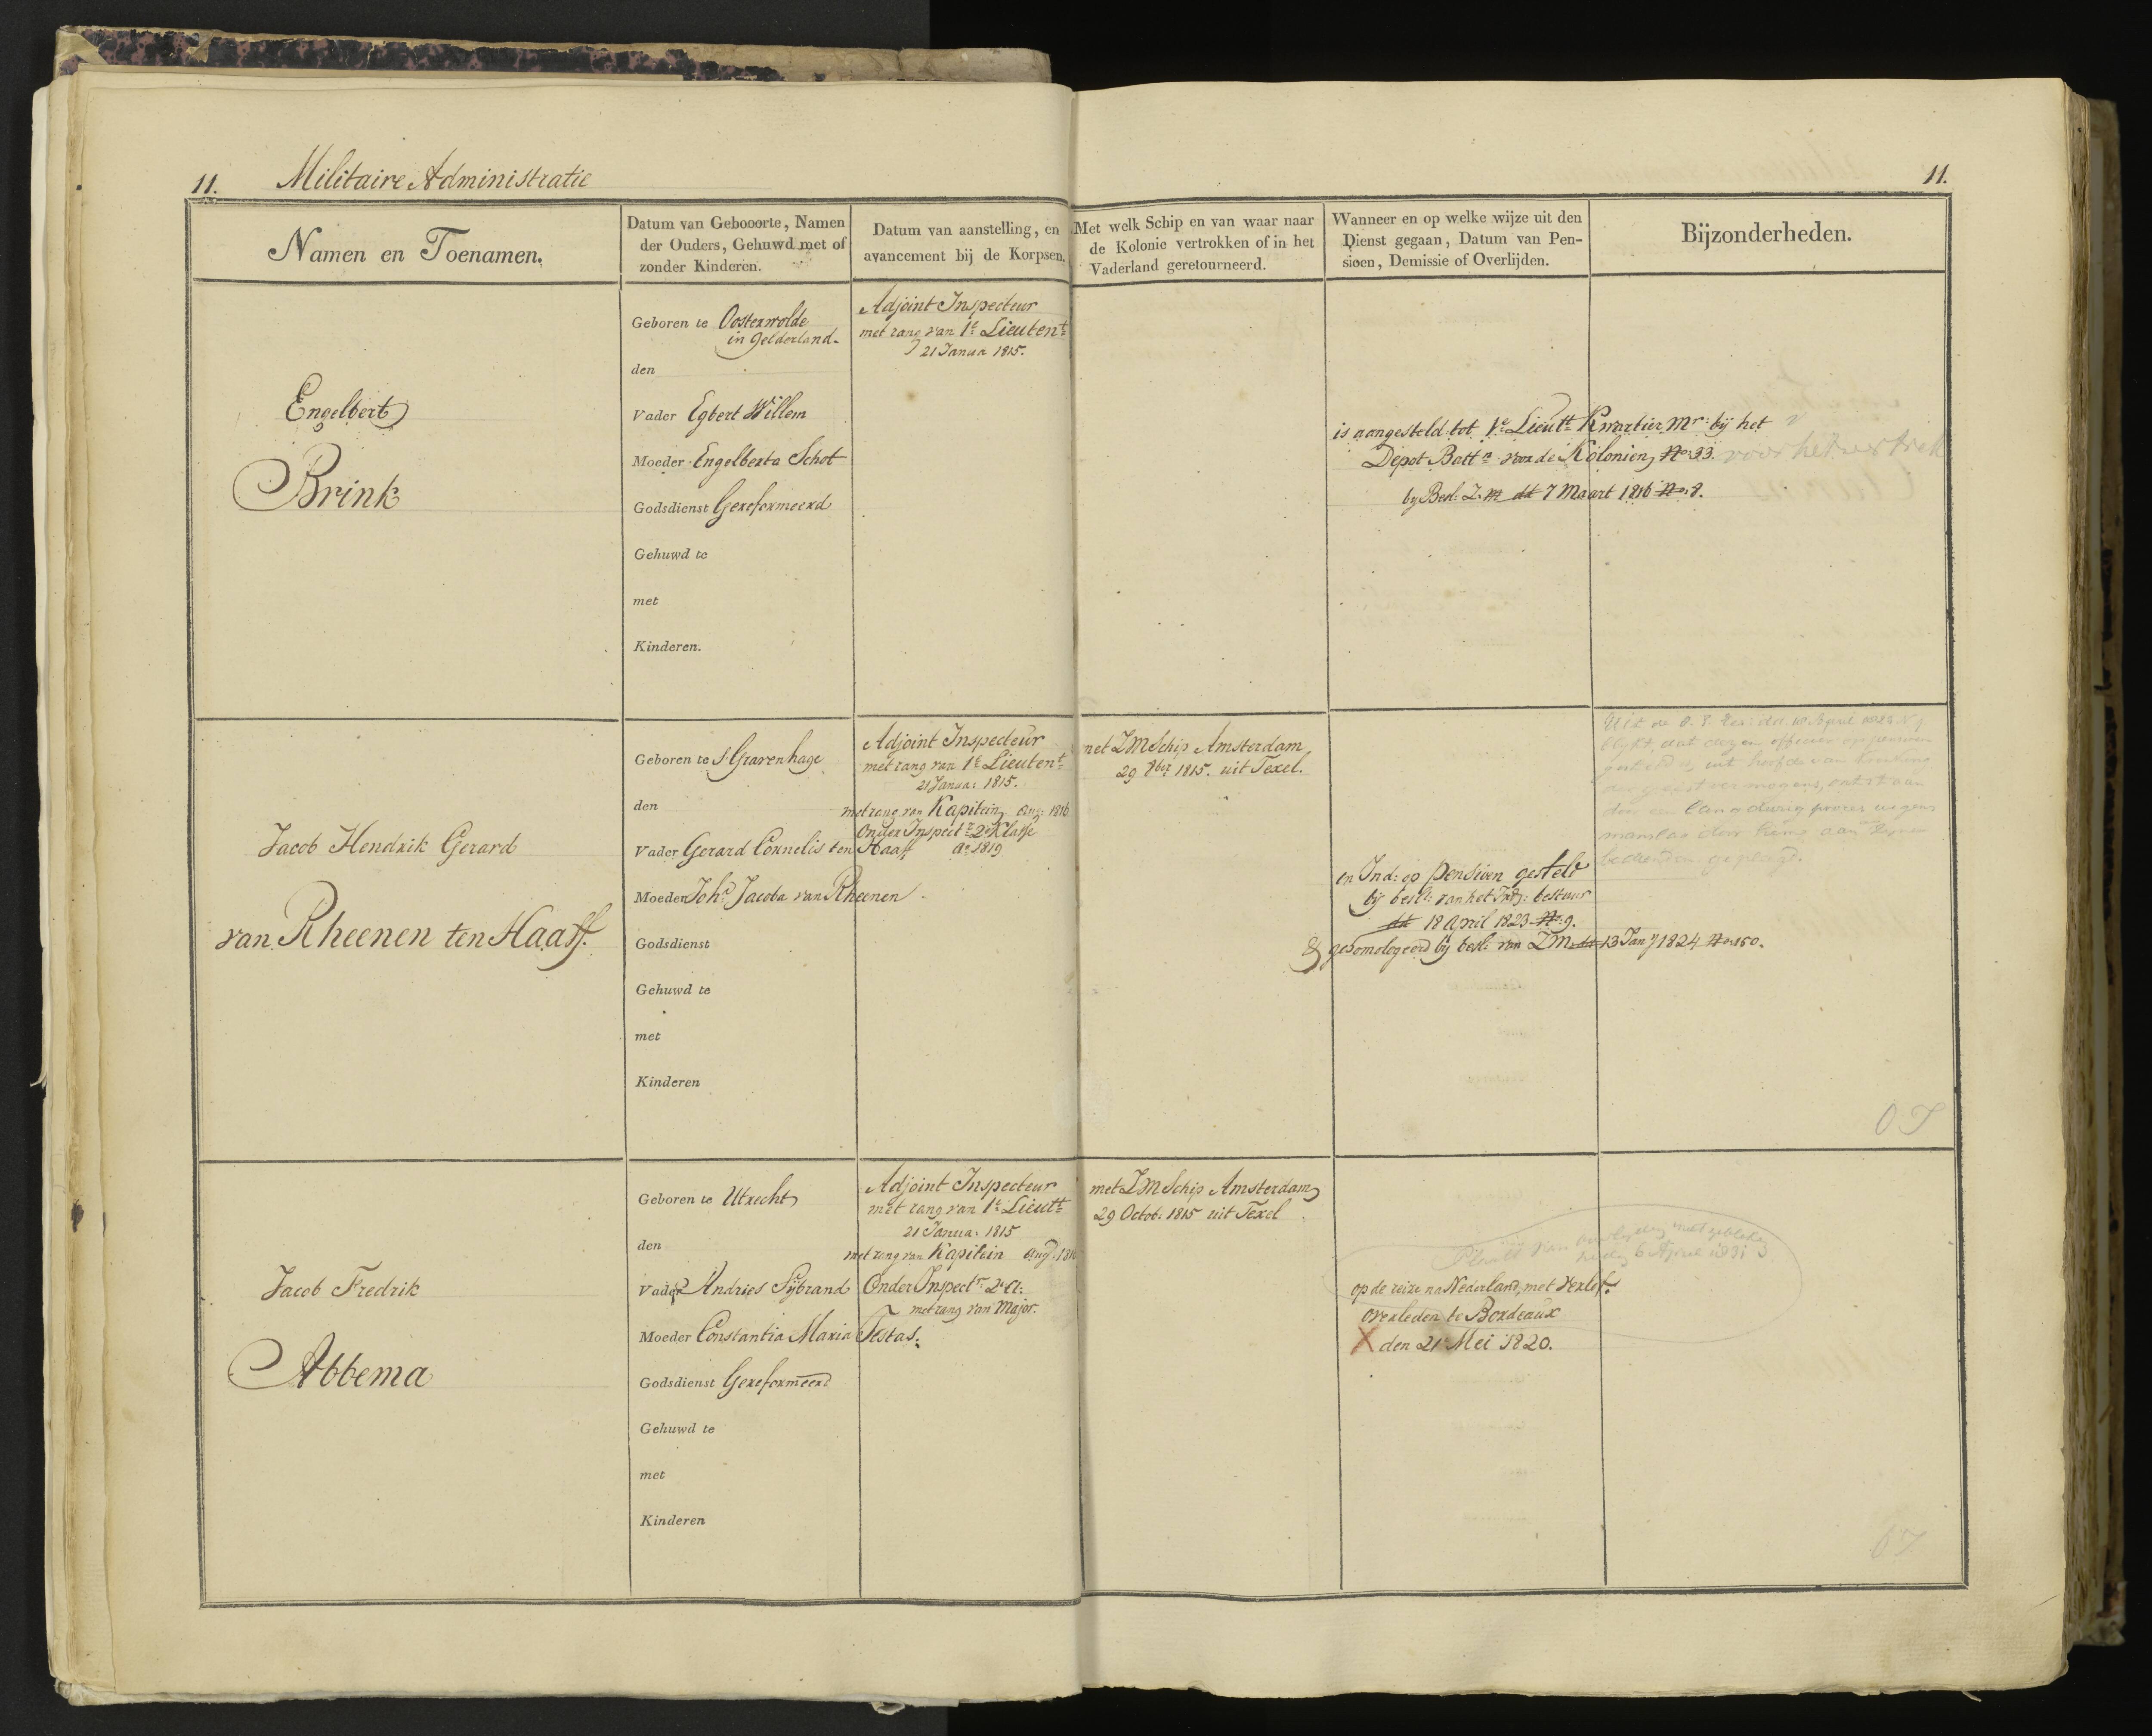 11. Militaire Administratie
11.
Namen en Toenamen.
Datum van Gebooorte, Namen
der Ouders, Gehuwd met of
zonder Kinderen.
Datum van aanstelling, en
avancement bij de Korpsen.
Met welk Schip en van waar naar
de Kolonie vertrokken of in het
Vaderland geretourneerd.
Wanneer en op welke wijze uit den
Dienst gegaan, Datum van Pen-
sioen, Demissie of Overlijden.
Bijzonderheden.
Engelbert
Brink
Geboren te Oosterwolde
in Gelderland.
den
Vader Egbert Willem
Moeder Engelberta Schot
Godsdienst Gereformeerd
Gehuwd te
met
Kinderen.
Adjoint Inspecteur
met rang van 1e Lieutent
21 Janua 1815.
is aangesteld tot 1e Lieutt Kwartier Mr: bij het
Depot Battn voor de Kolonien, No. 33.
voor het vertrek
by Besl: Z.M dd 7 Maart 1816 No. 8.
Jacob Hendrik Gerard
van Rheenen ten Haaff.
Geboren te s'Gravenhage
den
Vader Gerard Cornelis ten Haaff
Moeder Joha Jacoba van Rheenen
Godsdienst
Gehuwd te
met
Kinderen
Adjoint Inspecteur
met rang van 1e Lieutent
21 Janua: 1815.
met rang van Kapitein Aug: 1816
Onder Inspectr 2e Klasse
Ao 1819
met ZM Schip Amsterdam,
29 8ber 1815. uit Texel.
in Ind: op Pensioen gesteld
bij beslt: van het Ind: bestuur
dd 18 April 1823 No. 9.
& gehomologeerd bij besl: van ZM dd 13 Jany 1824 No. 150.
blijkt, dat dezen officier op pensioen
gesteld is, uit hoofde van
door een langdurig proces wegens
manslag door hem aan
bedienden gepleegd.
OI
Jacob Fredrik
Abbema
Geboren te Utrecht
den
Vader Andries Sybrand
Moeder Constantia Maria Testas.
Godsdienst Gereformeerd
Gehuwd te
met
Kinderen
Adjoint Inspecteur
met rang van 1e Lieutt
21 Janua: 1815
met rang van Kapitein Aug: 1816
Onder Inspectr: 2e Cl:
met rang van Major.
met ZM Schip Amsterdam
29 Octob: 1815 uit Texel
op de reize na Nederland, met Verlof.
overleden te Bordeaux
X den 21 Mei 1820.
OI